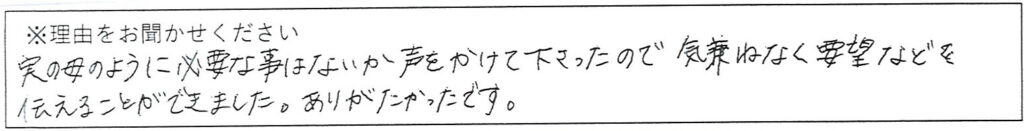 ※理由をお聞かせください
実の母のように必要な事はないか声をかけて下さったので 気兼ねなく要望などを
伝えることができました。ありがたかったです。